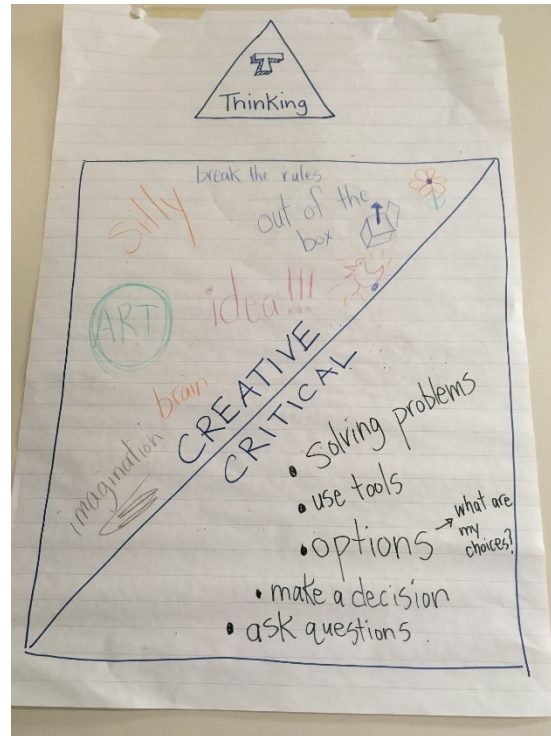 T
Thinking
break the rules
silly
out of the
box
idea!!!
ART
brain
imagination
CREATIVE
CRITICAL
• solving problems
• use tools
• options → what are
my
choices?
• make a decision
• ask questions